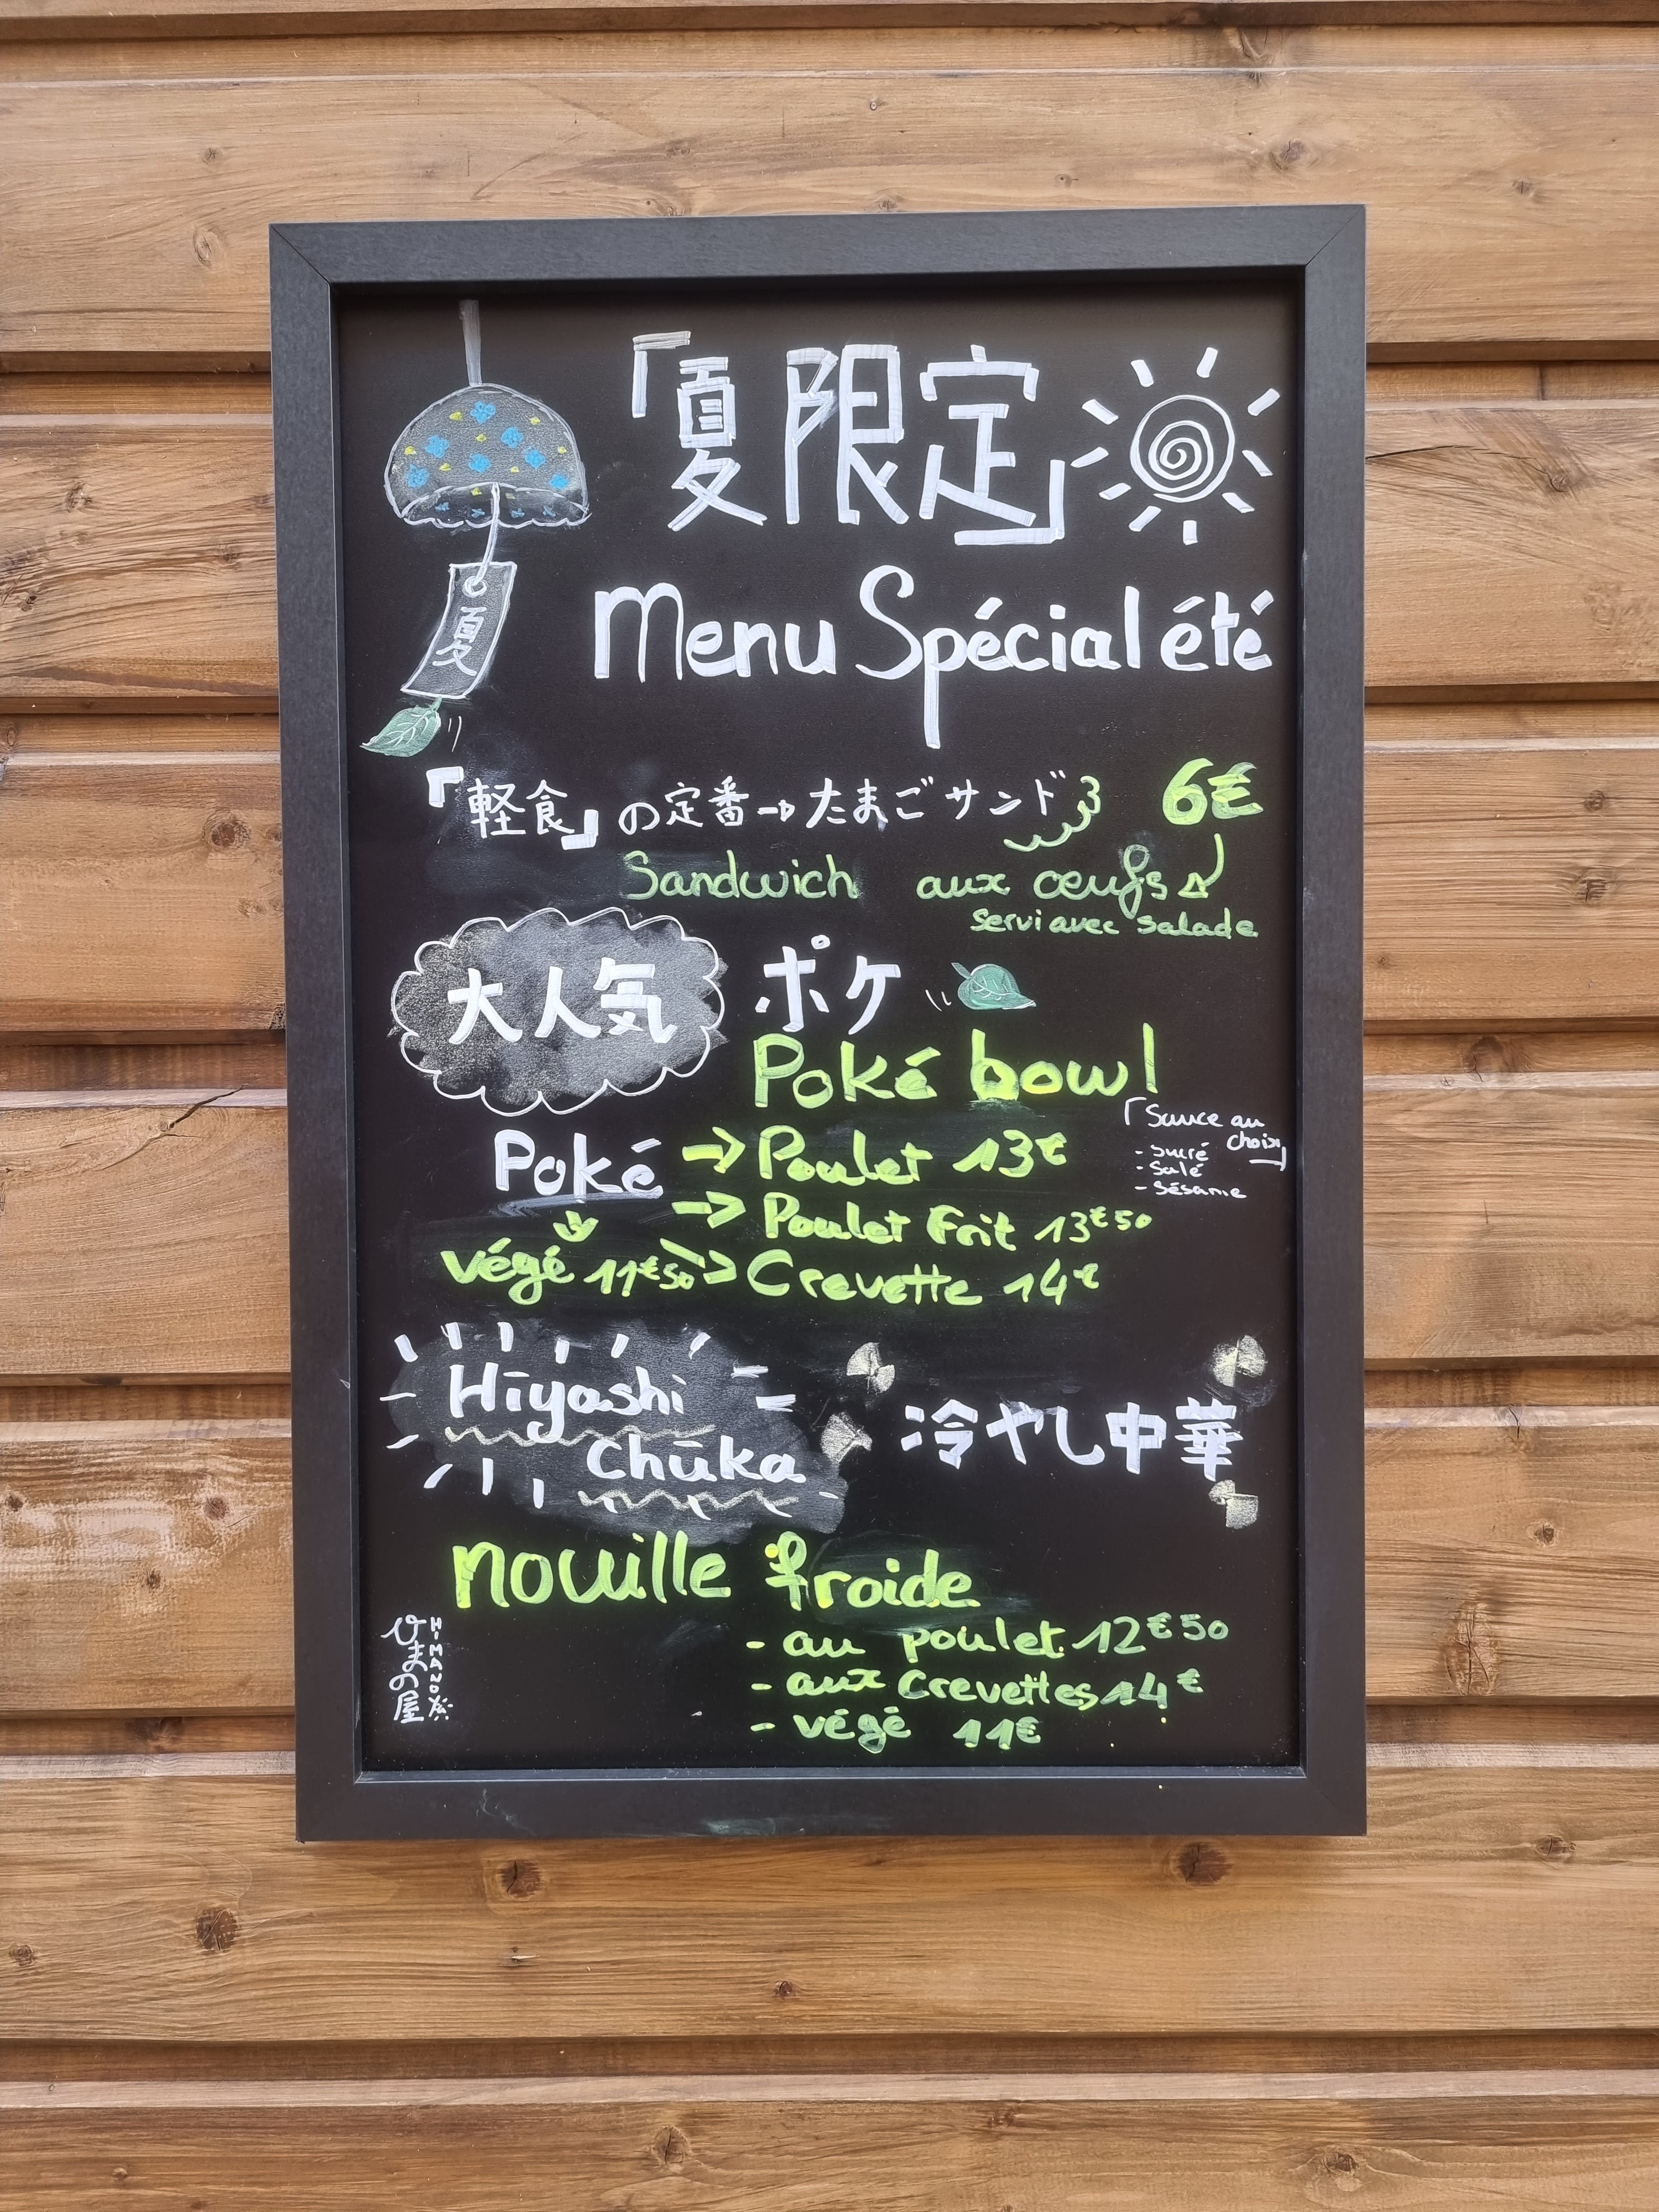 「夏限定」
Menu Spécial été
夏
「軽食」の定番→たまごサンド 6€
Sandwich aux œufs
Servi avec salade
大人気 ポケ
Poké bowl
「Sauce au
choix」
- Sucré
- Salé
- Sésame
Poké → Poulet 13€
→ Poulet Frit 13€50
végé 11€50 → Crevette 14€
Hiyashi
Chūka
冷やし中華
nouille froide
- au poulet 12€50
- aux Crevettes 14€
- végé 11€
ひまの屋
HIMANOYA